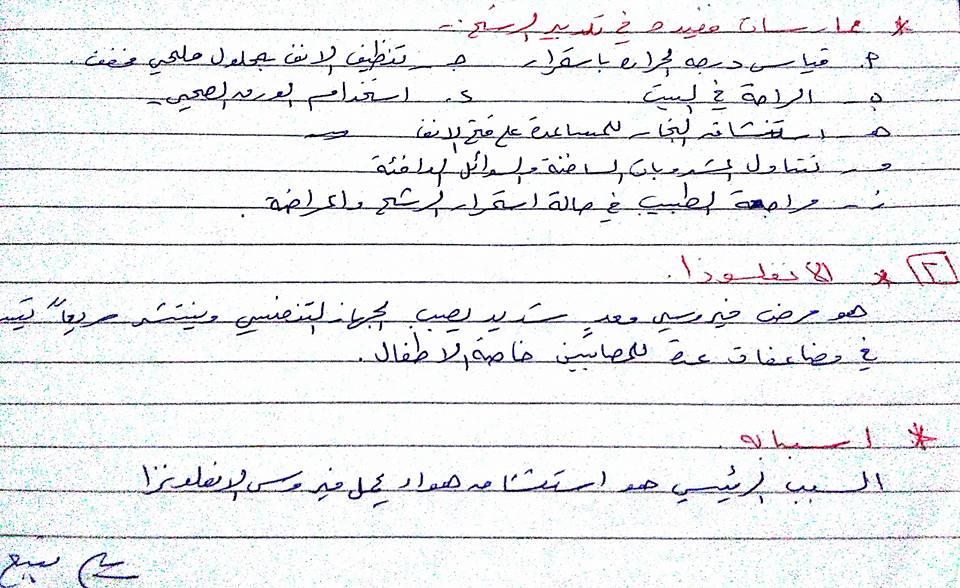 * ممارسات مفيدة في تدبير الرشح :-
م. قياس درجه الحراره باستمرار ج - تنظيف الانف بمحلول ملحي مخفف .
ب الراحة في البيت د. استخدام الورق الصحي -
هـ استنشاق البخار للمساعدة على فتح الانف
و - تناول المشروبات الساخنة والسوائل الدافئة
ز - مراجعة الطبيب في حالة استمرار الرشح واعراضه .
[٢] * الانفلونزا .
هو مرض فيروسي معدٍ شديد يصيب الجهاز التنفسي وينتشر سريعاً
في مضاعفات عدة للمصابين خاصة الاطفال .
* اسبابه
السبب الرئيسي هو استنشاق هواء يحمل فيروس الانفلونزا
يتبع